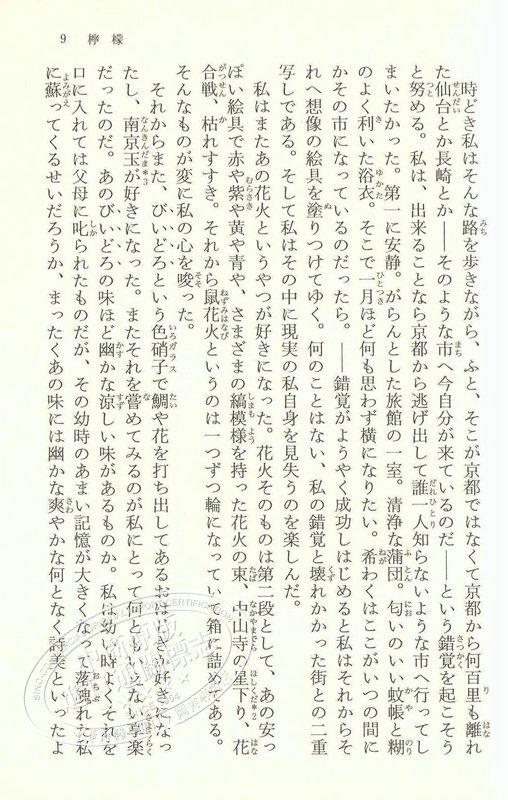 9 檸檬
時どき私はそんな路を歩きながら、ふと、そこが京都ではなくて京都から何百里も離れ
た仙台とか長崎とか――そのような市へ今自分が来ているのだ――という錯覚を起こそう
と努める。私は、出来ることなら京都から逃げ出して誰一人知らないような市へ行ってし
まいたかった。第一に安静。がらんとした旅館の一室。清浄な蒲団。匂いのいい蚊帳と糊
のよく利いた浴衣。そこで一月ほど何も思わず横になりたい。希わくはここがいつの間に
かその市になっているのだったら。――錯覚がようやく成功しはじめると私はそれからそ
れへ想像の絵具を塗りつけてゆく。何のことはない、私の錯覚と壊れかかった街との二重
写しである。そして私はその中に現実の私自身を見失うのを楽しんだ。
私はまたあの花火というやつが好きになった。花火そのものは第二段として、あの安っ
ぽい絵具で赤や紫や黄や青や、さまざまの縞模様を持った花火の束、中山寺の星下り、花
合戦、枯れすすき。それから鼠花火というのは一つずつ輪になっていて箱に詰めてある。
そんなものが変に私の心を唆った。
それからまた、びいどろという色硝子で鯛や花を打ち出してあるおはじきが好きになっ
たし、南京玉が好きになった。またそれを嘗めてみるのが私にとって何ともいえない享楽
だったのだ。あのびいどろの味ほど幽かな涼しい味があるものか。私は幼い時よくそれを
口に入れては父母に叱られたものだが、その幼時のあまい記憶が大きくなって落魄れた私
に蘇ってくるせいだろうか、まったくあの味には幽かな爽やかな何となく詩美といったよ